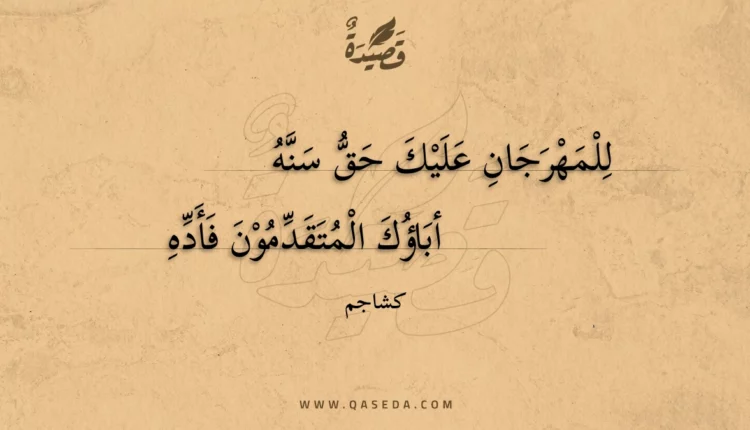 قَصِيدَةٌ
لِلْمَهْرَجَانِ عَلَيْكَ حَقُّ سَنَّهُ
أبَاؤُكَ الْمُتَقَدِّمُوْنَ فَأَدِّهِ
كشاجم
WWW.QASEDA.COM